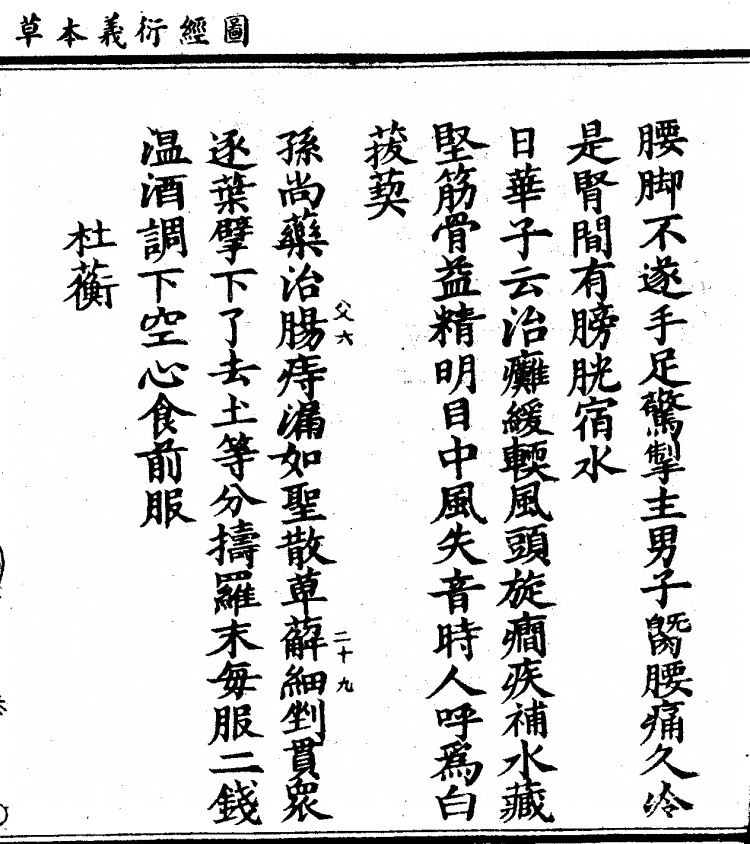 圖經衍義本草
腰脚不遂手足驚掣主男子臋腰痛久冷
是腎間有膀胱宿水
日華子云治癱緩輭風頭旋癎疾補水藏
堅筋骨益精明目中風失音時人呼爲白
菝葜
孫尚藥治腸痔漏如聖散草薢細剉貫衆
父六
二十九
逐葉擘下了去土等分擣羅末每服二錢
温酒調下空心食前服
杜蘅